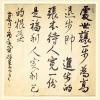 處世讓一步為高
退步即進步的
張本待人寬一分
是福利人實利己
的根基